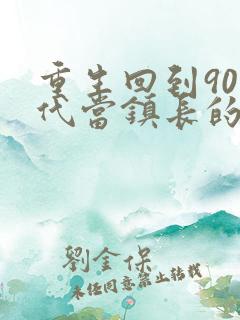 重生回到90
代當鎮長的
劉金保
未經同意禁止轉載